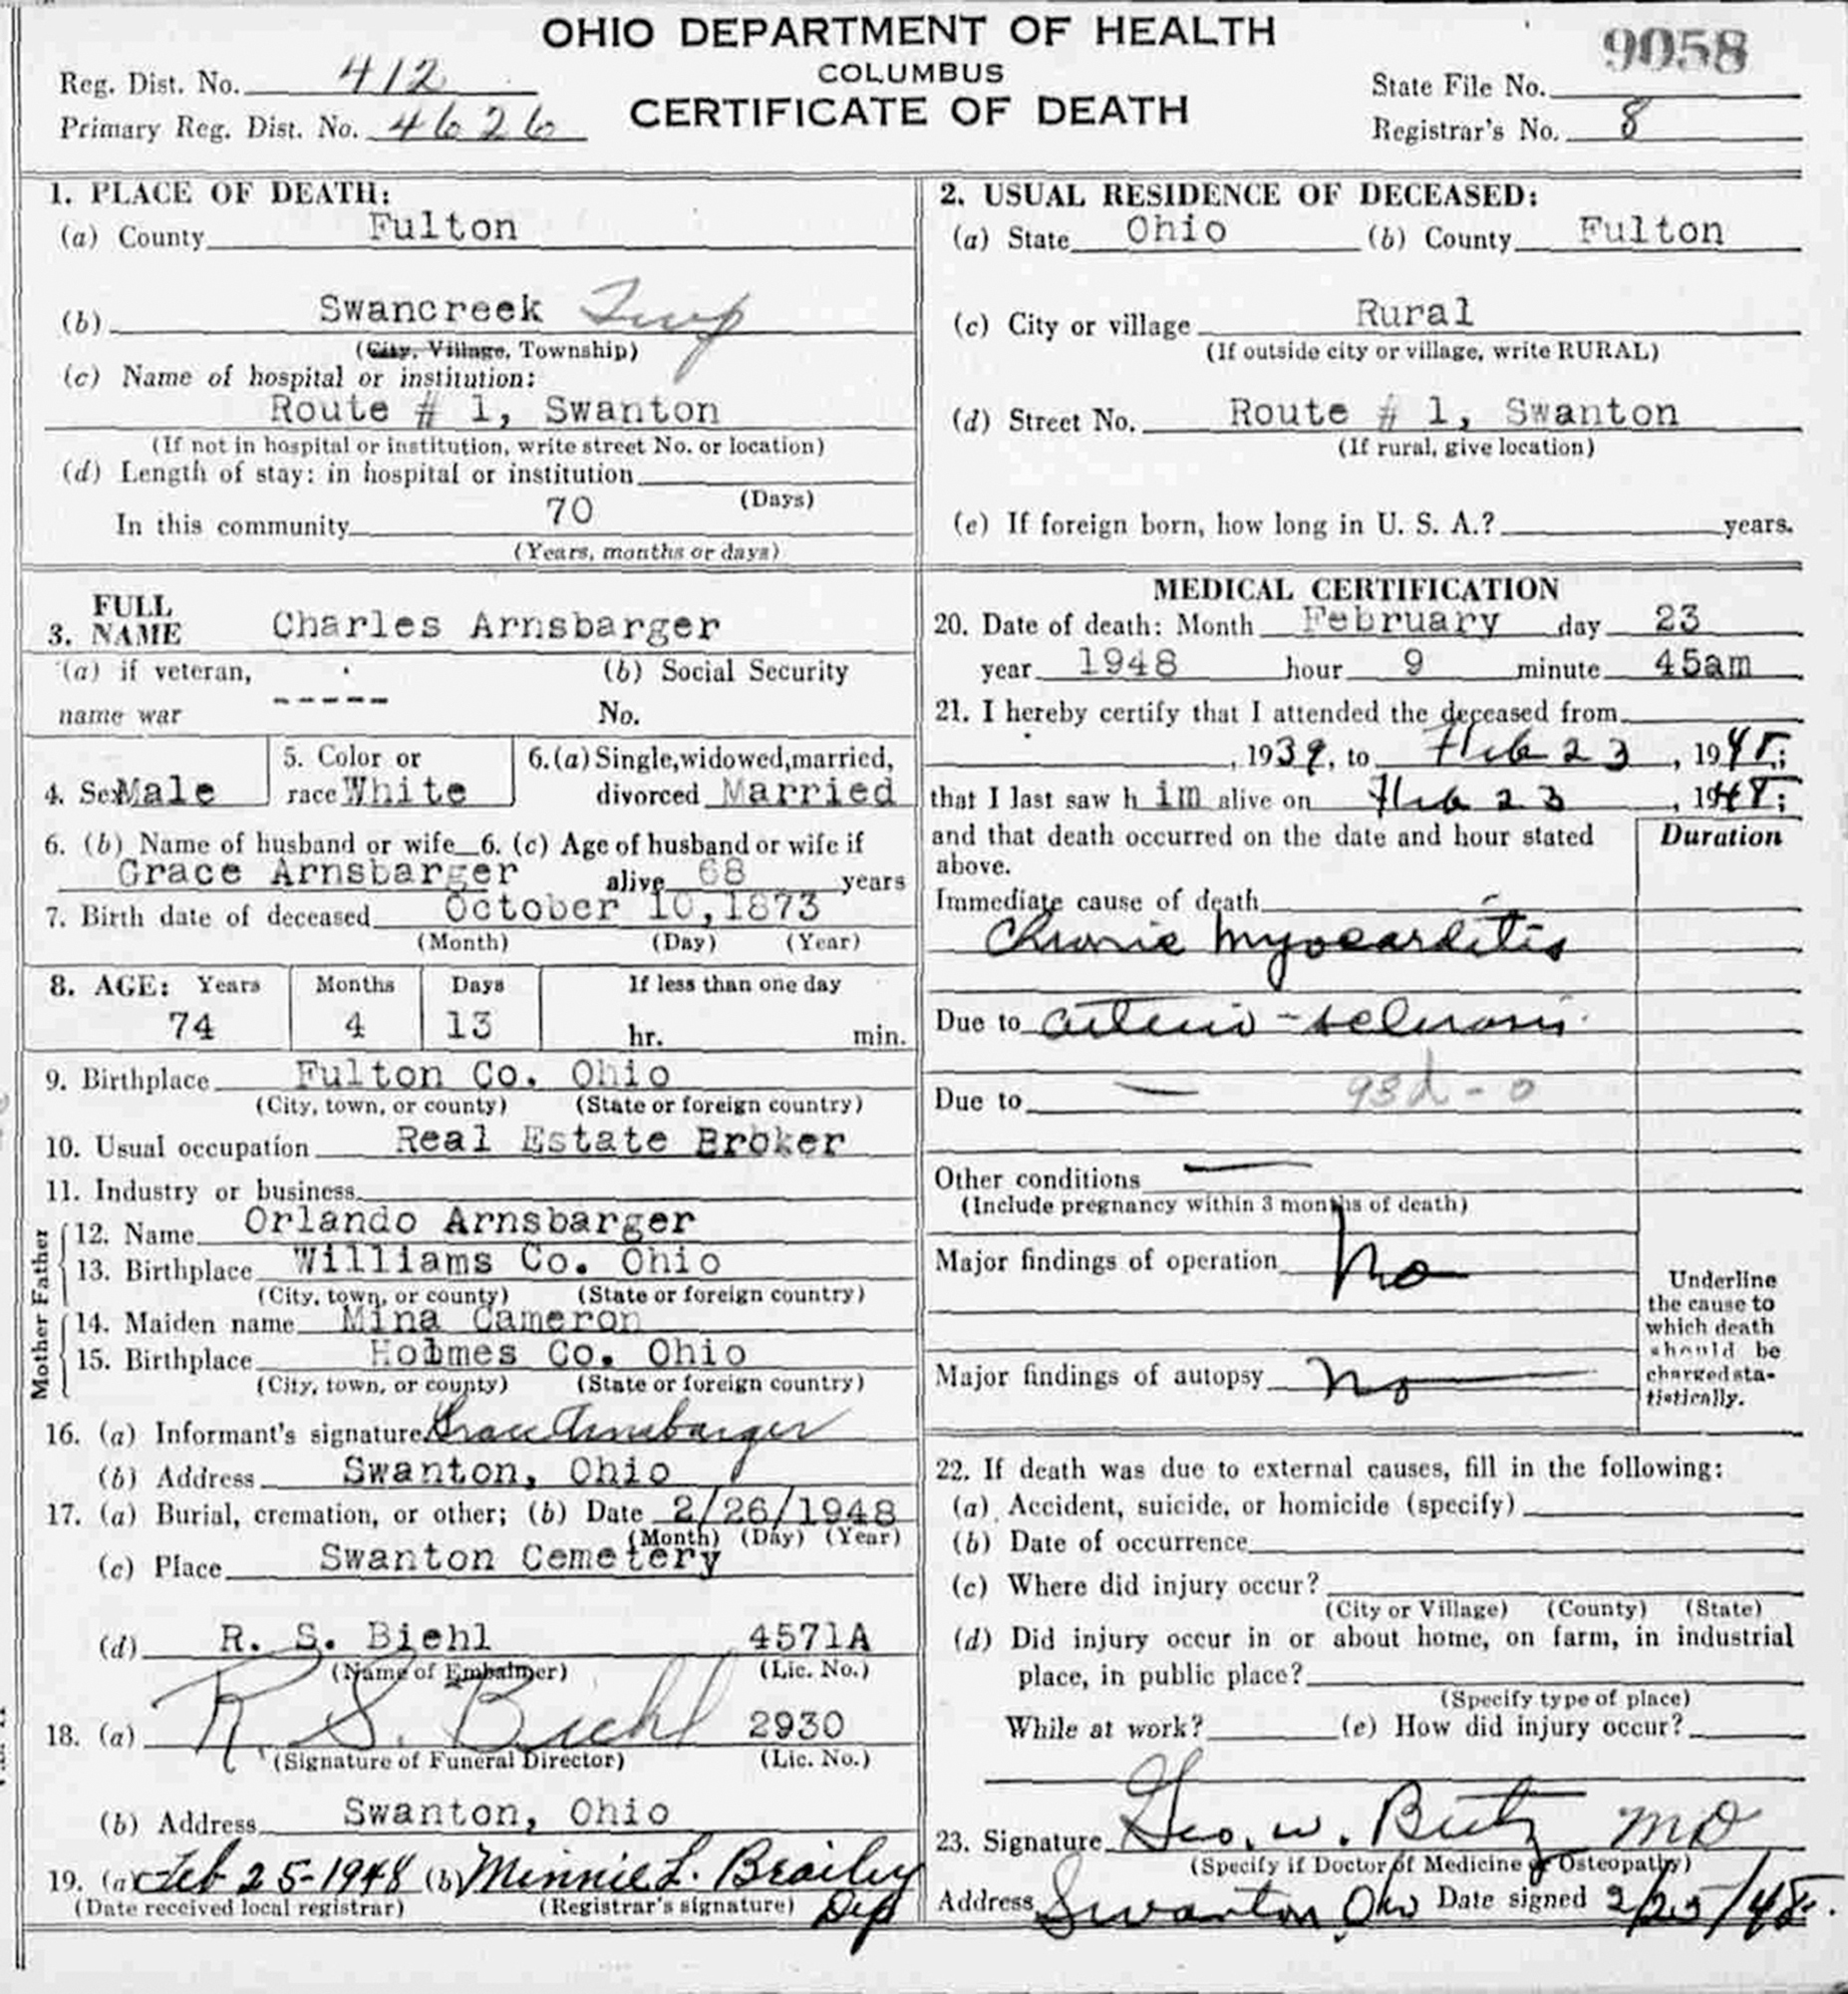 OHIO DEPARTMENT OF HEALTH
COLUMBUS
CERTIFICATE OF DEATH
Reg. Dist. No. 412
Primary Reg. Dist. No. 4626
9058
State File No.
Registrar's No. 8
1. PLACE OF DEATH:
(a) County Fulton
(b) Swancreek Twp
(City, Village, Township)
(c) Name of hospital or institution:
Route # 1, Swanton
(If not in hospital or institution, write street No. or location)
(d) Length of stay: in hospital or institution
(Days)
In this community 70
(Years, months or days)
2. USUAL RESIDENCE OF DECEASED:
(a) State Ohio (b) County Fulton
(c) City or village Rural
(If outside city or village, write RURAL)
(d) Street No. Route # 1, Swanton
(If rural, give location)
(e) If foreign born, how long in U. S. A.? years.
3. FULL NAME Charles Arnsbarger
(a) if veteran, name war -----
(b) Social Security No.
4. Sex Male
5. Color or race White
6. (a) Single, widowed, married, divorced Married
6. (b) Name of husband or wife 6. (c) Age of husband or wife if
Grace Arnsbarger alive 68 years
7. Birth date of deceased October 10, 1873
(Month) (Day) (Year)
8. AGE: Years Months Days If less than one day
74 4 13 hr. min.
9. Birthplace Fulton Co. Ohio
(City, town, or county) (State or foreign country)
10. Usual occupation Real Estate Broker
11. Industry or business
Father
12. Name Orlando Arnsbarger
13. Birthplace Williams Co. Ohio
(City, town, or county) (State or foreign country)
Mother
14. Maiden name Mina Cameron
15. Birthplace Holmes Co. Ohio
(City, town, or county) (State or foreign country)
16. (a) Informant's signature Grace Arnsbarger
(b) Address Swanton, Ohio
17. (a) Burial, cremation, or other; (b) Date 2/26/1948
(Month) (Day) (Year)
(c) Place Swanton Cemetery
(d) R. S. Biehl 4571A
(Name of Embalmer) (Lic. No.)
18. (a) R. S. Biehl 2930
(Signature of Funeral Director) (Lic. No.)
(b) Address Swanton, Ohio
19. (a) Feb 25-1948 (b) Minnie L. Brailey
(Date received local registrar) (Registrar's signature) Dep
MEDICAL CERTIFICATION
20. Date of death: Month February day 23
year 1948 hour 9 minute 45am
21. I hereby certify that I attended the deceased from
, 1939, to Feb 23, 1948;
that I last saw h im alive on Feb 23, 1948;
and that death occurred on the date and hour stated
above.
Duration
Immediate cause of death
Chronic myocarditis
Due to arterio-sclerosis
Due to — 93d-0
Other conditions —
(Include pregnancy within 3 months of death)
Major findings of operation no
Major findings of autopsy no
Underline
the cause to
which death
should be
charged sta-
tistically.
22. If death was due to external causes, fill in the following:
(a) Accident, suicide, or homicide (specify)
(b) Date of occurrence
(c) Where did injury occur?
(City or Village) (County) (State)
(d) Did injury occur in or about home, on farm, in industrial
place, in public place?
(Specify type of place)
While at work? (e) How did injury occur?
23. Signature Geo. W. Bietz MD
(Specify if Doctor of Medicine or Osteopathy)
Address Swanton, Ohio Date signed 2/25/48.